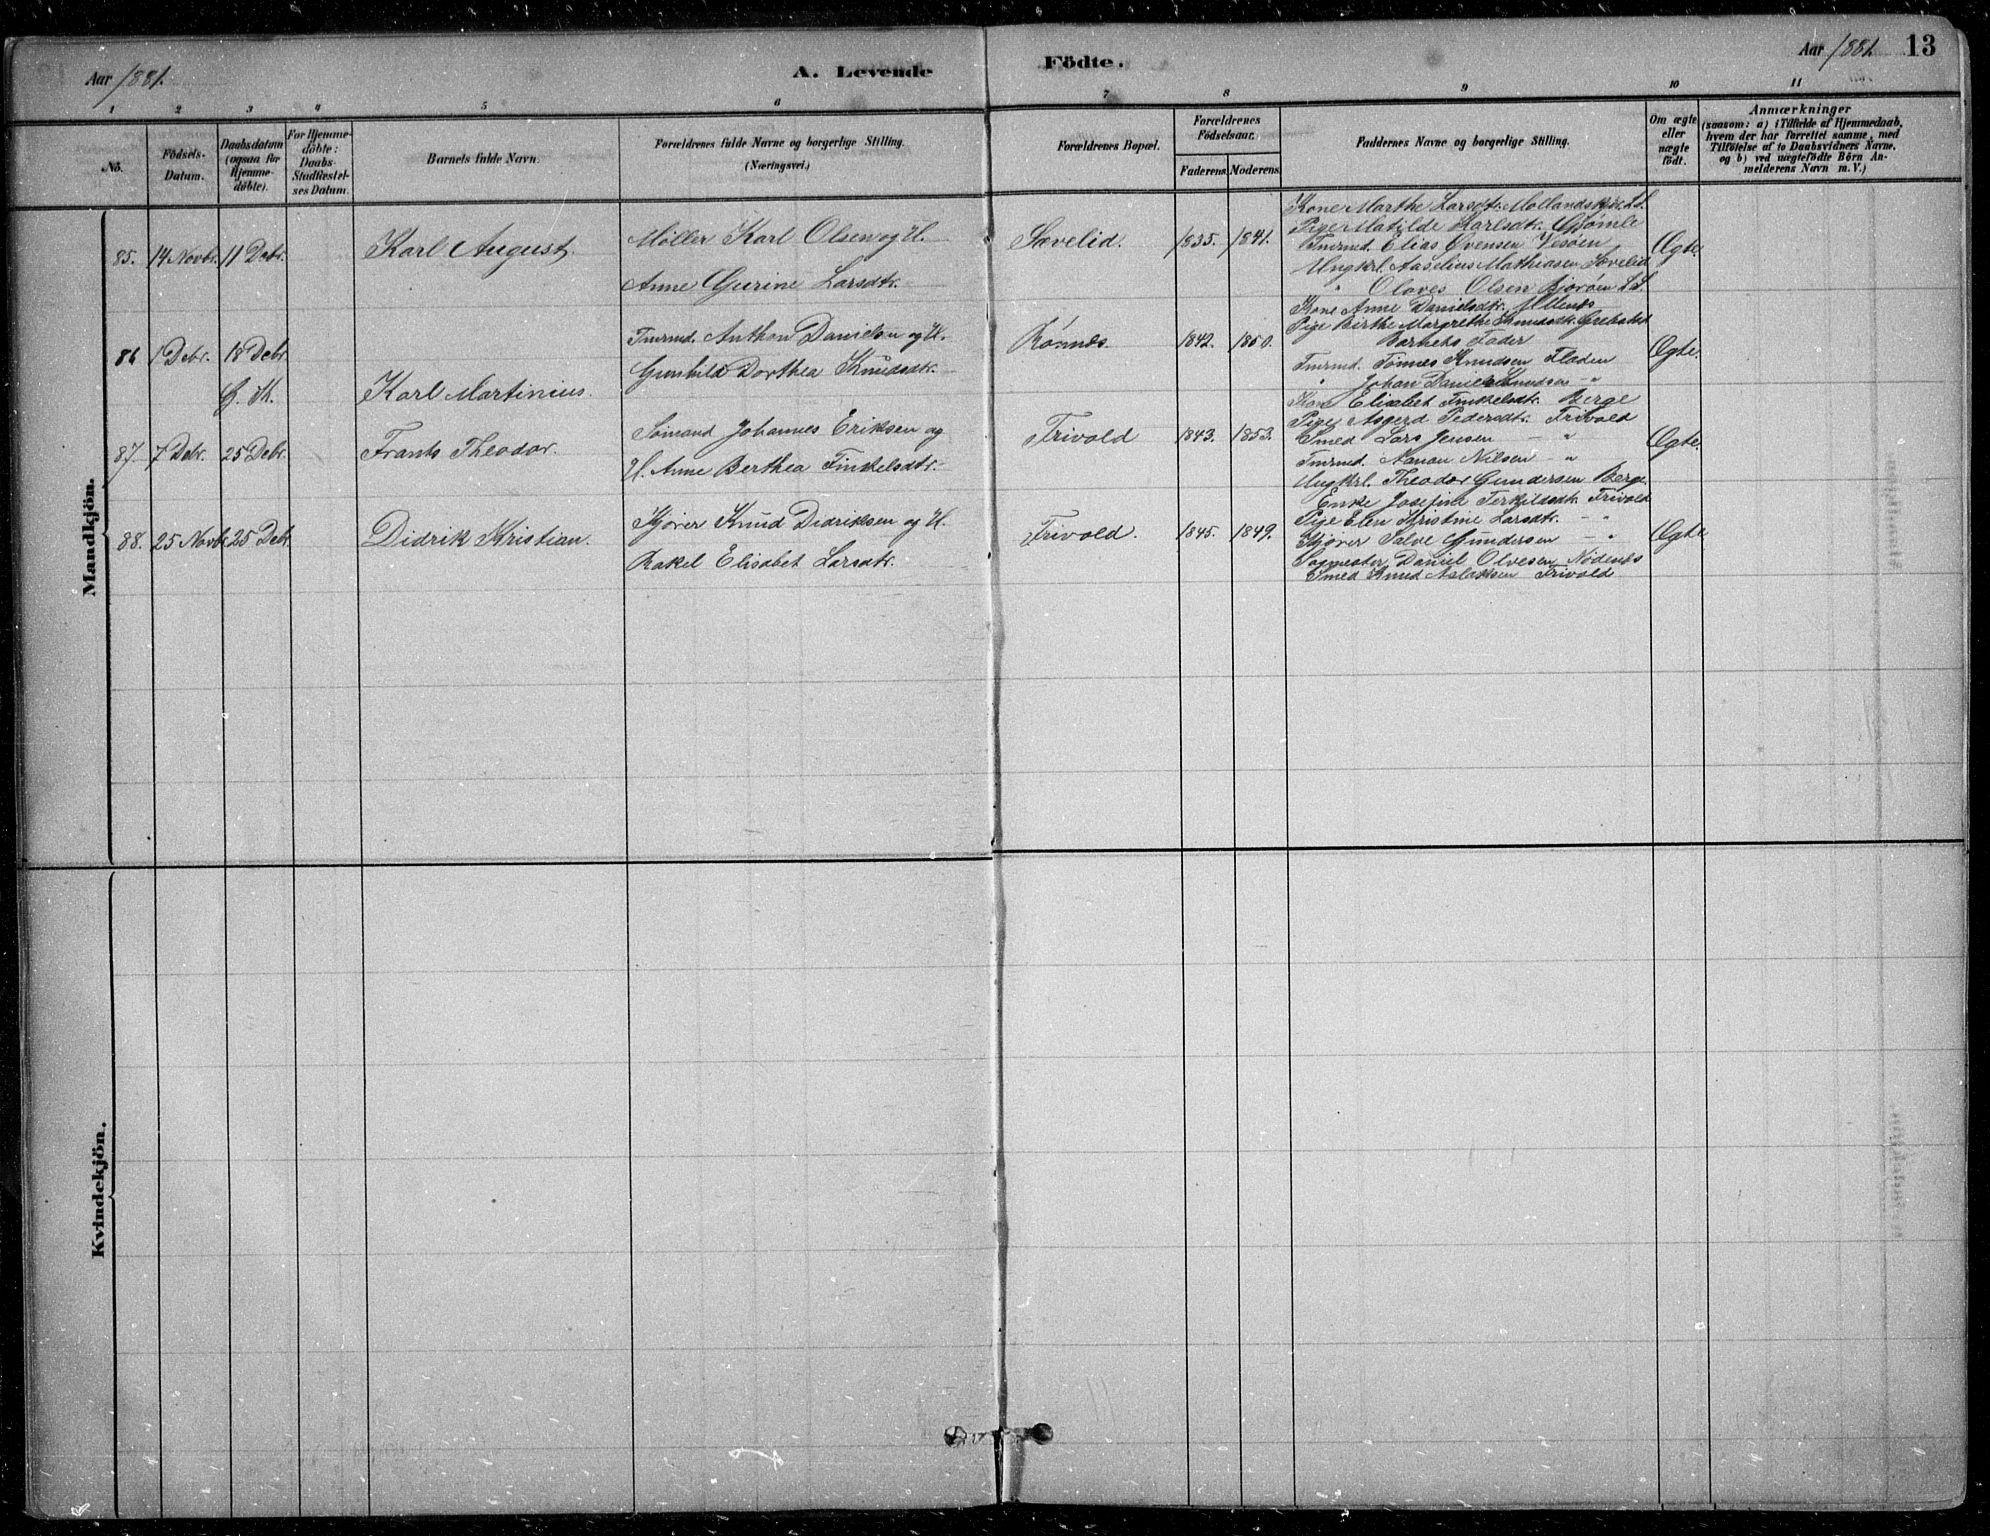 Aar 1881.
A. Levende
Födte.
Aar 1881.
13
1 2 3 4 5 6 7 8 9 10 11
No.
Födsels-Datum.
Daabsdatum (ogsaa for Hjemme-döbte).
For Hjemme-döbte: Daabs-Stadfæstel-ses Datum.
Barnets fulde Navn.
Forældrenes fulde Navne og borgerlige Stilling.
(Næringsvei.)
Forældrenes Bopæl.
Forældrenes Födselsaar.
Faderens
Moderens
Faddernes Navne og borgerlige Stilling.
Om ægte eller uægte födt.
Anmærkninger
(saasom: a) i Tilfælde af Hjemmedaab,
hvem der har forrettet samme, med
Tilföielse af to Daabsvidners Navne,
og b) ved uægtefödte Börn An-
melderens Navn m. V.)
Mandkjön.
85. 14 Novbr. 11 Debr. Karl August.
Møller Karl Olsen og H.
Anne Gurine Larsdtr.
Sævelid. 1835. 1841.
Kone Marthe Larsdtr.
Pige Matilde Karlsdtr. Gjømle
Tmrmd. Elias Evensen Vesøen
Ungkrl. Aaselius Mathiasen Sævelid
" Olaves Olsen Bjorøen L.S.
Ægte.
86 1 Debr. 18 Debr. Karl Martinius.
Tmrmd. Anthon Danielsen og H.
Gunhild Dorthea Knudsdtr.
Rønnes. 1842. 1850.
Kone Anne Danielsdtr.
Pige Birthe Margrethe Knudsdtr.
Barnets Fader
Tmrmd. Tønnes Knudsen Fladen
" Johan Daniel Knudsen "
Ægte.
87. 7 Debr. 25 Debr. Frants Theodor.
Sømand Johannes Eriksen og
H. Anne Berthea Finkelsdtr.
Trivold 1843. 1853.
Kone Elisabet Finkelsdtr. Berge
Pige Asgerd Pedersdtr. Trivold
Smed Lars Jensen — "
Tmrmd. Nilsen — "
Ungkrl. Theodor Gundersen Berge
Ægte.
88. 25 Novbr. 25 Debr. Didrik Kristian.
Kjører Knud Didriksen og H.
Rakel Elisabet Larsdtr.
Trivold. 1845. 1849.
Enke Josefine Terkildsdtr. Trivold
Pige Elen Kristine Larsdtr. — "
Kjører Salve Gundersen — "
Sagmester Daniel Olvesen Nødenes
Smed Knud Aslaksen Trivold
Ægte
Kvindekjön.